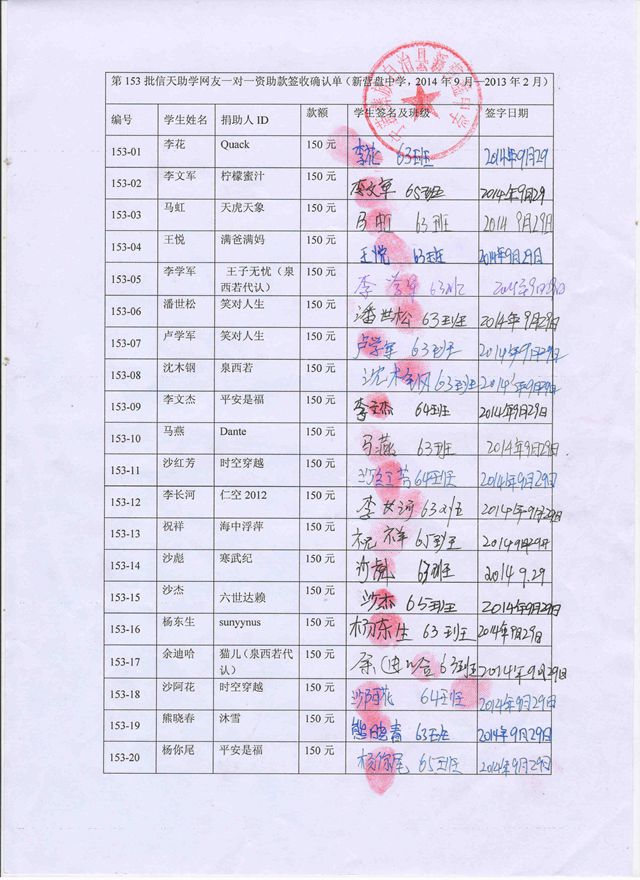 第 153 批信天助学网友一对一资助款签收确认单（新营盘中学，2014 年 9 月—2013 年 2 月）
编号 学生姓名 捐助人 ID 款额 学生签名及班级 签字日期
153-01 李花 Quack 150 元 李花 63班 2014年9月29
153-02 李文军 柠檬蜜汁 150 元 李文军 65班 2014年9月29
153-03 马虹 天虎天象 150 元 马虹 63班 2014 9月29日
153-04 王悦 满爸满妈 150 元 王悦 63班 2014年9月29日
153-05 李学军 王子无忧（泉西若代认） 150 元 李学军 63班 2014年9月29日
153-06 潘世松 笑对人生 150 元 潘世松 63班 2014年9月29日
153-07 卢学军 笑对人生 150 元 卢学军 63班 2014年9月29日
153-08 沈木钢 泉西若 150 元 沈木钢 63班 2014年9月29日
153-09 李文杰 平安是福 150 元 李文杰 64班 2014年9月29日
153-10 马燕 Dante 150 元 马燕 63班 2014年9月29日
153-11 沙红芳 时空穿越 150 元 沙红芳 64班 2014年9月29日
153-12 李长河 仁空 2012 150 元 李长河 63班 2014年9月29日
153-13 祝祥 海中浮萍 150 元 祝祥 65班 2014年9月29日
153-14 沙彪 寒武纪 150 元 沙彪 63班 2014.9.29
153-15 沙杰 六世达赖 150 元 沙杰 65班 2014年9月29日
153-16 杨东生 sunyynus 150 元 杨东生 63班 2014年9月29日
153-17 余迪哈 猫儿（泉西若代认） 150 元 余迪哈 63班 2014年9月29日
153-18 沙阿花 时空穿越 150 元 沙阿花 64班 2014年9月29日
153-19 熊晓春 沐雪 150 元 熊晓春 63班 2014年9月29日
153-20 杨你尾 平安是福 150 元 杨你尾 65班 2014年9月29日